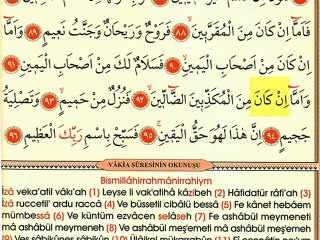 فَاَمَّٓا اِنْ كَانَ مِنَ الْمُقَرَّبٖينَ ﴿٨٨﴾ فَرَوْحٌ وَرَيْحَانٌ وَجَنَّتُ نَعٖيمٍ ﴿٨٩﴾ وَاَمَّٓا
اِنْ كَانَ مِنْ اَصْحَابِ الْيَمٖينِ ﴿٩٠﴾ فَسَلَامٌ لَكَ مِنْ اَصْحَابِ الْيَمٖينِ ﴿٩١﴾
وَاَمَّٓا اِنْ كَانَ مِنَ الْمُكَذِّبٖينَ الضَّٓالّٖينَ ﴿٩٢﴾ فَنُزُلٌ مِنْ حَمٖيمٍ ﴿٩٣﴾ وَتَصْلِيَةُ
جَحٖيمٍ ﴿٩٤﴾ اِنَّ هٰذَا لَهُوَ حَقُّ الْيَقٖينِ ﴿٩٥﴾ فَسَبِّحْ بِاسْمِ رَبِّكَ الْعَظٖيمِ ﴿٩٦﴾
VÂKİA SÛRESİNİN OKUNUŞU
Bismillâhirrahmânirrahiym
İzâ veka'atil vâk'ah (1) Leyse li vak'atihâ kâzibeh (2) Hâfidatür râfi'ah (3)
İzâ ruccetil' ardu raccâ (4) Ve büssetil cibâlü bessâ (5) Fe kânet hebâem
mümbessâ (6) Ve küntüm ezvâcen selâseh (7) Fe ashâbül meymeneti
mâ ashâbül meymeneh (8) Ve ashâbül meş'emeti mâ ashâbül meş'emeh